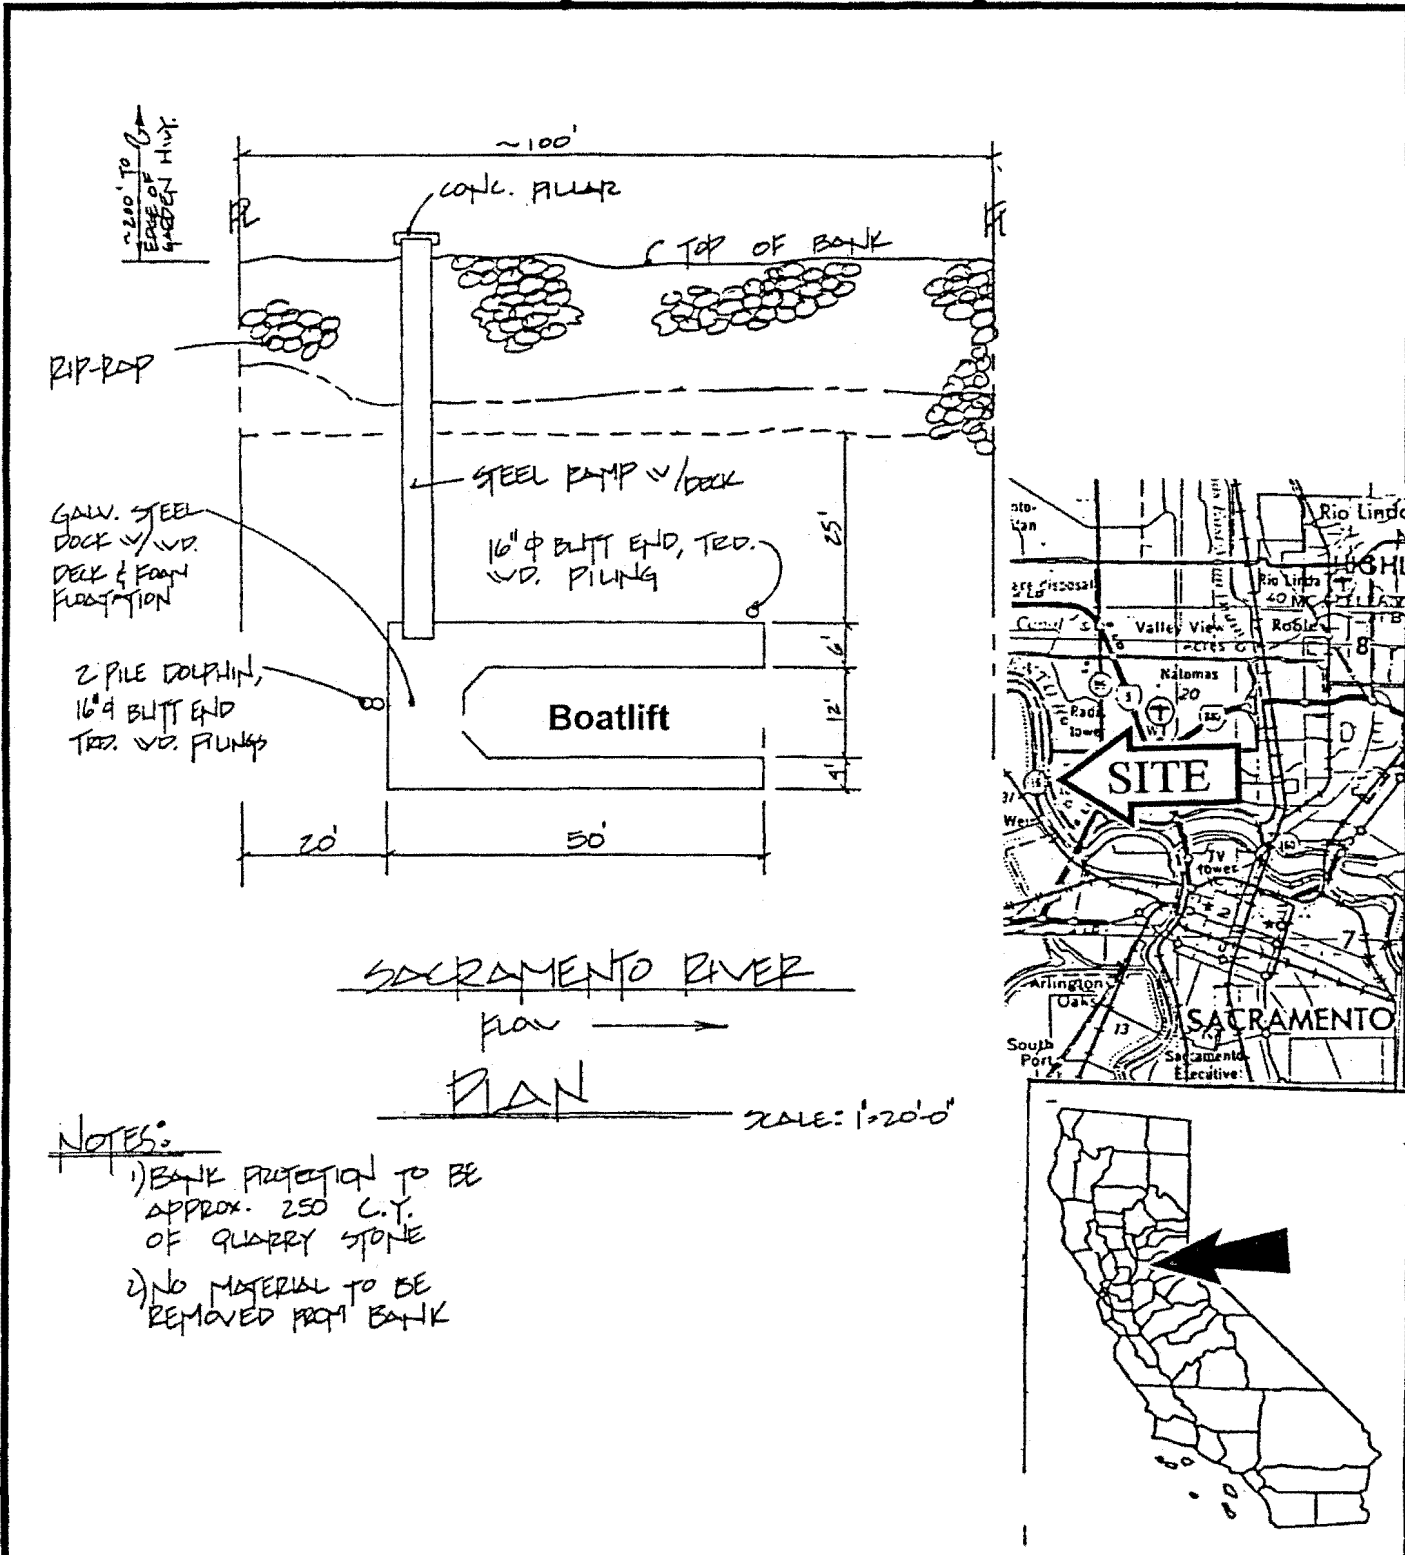 ~200' TO
EDGE OF
GARDEN HWY.
~100'
CONC. PILLAR
TOP OF BANK
RIP-RAP
STEEL RAMP W/DECK
GALV. STEEL
DOCK W/WD.
DECK & FOAM
FLOATATION
16"Φ BUTT END, TRD.
WD. PILING
25'
6'
2 PILE DOLPHIN,
16"Φ BUTT END
TRD. WD. PILINGS
Boatlift
12'
4'
20'
50'
SACRAMENTO RIVER
FLOW
PLAN
SCALE: 1"=20'-0"
NOTES:
1) BANK PROTECTION TO BE
APPROX. 250 C.Y.
OF QUARRY STONE
2) NO MATERIAL TO BE
REMOVED FROM BANK
Rio Linda
Rio Linda
Disposal
Valley View
Acres
Robla
8
Natomas
20
5
Radio
Tower
SITE
TV
Tower
2
7
Arlington
Oaks
13
SACRAMENTO
South
Port
Sacramento
Executive